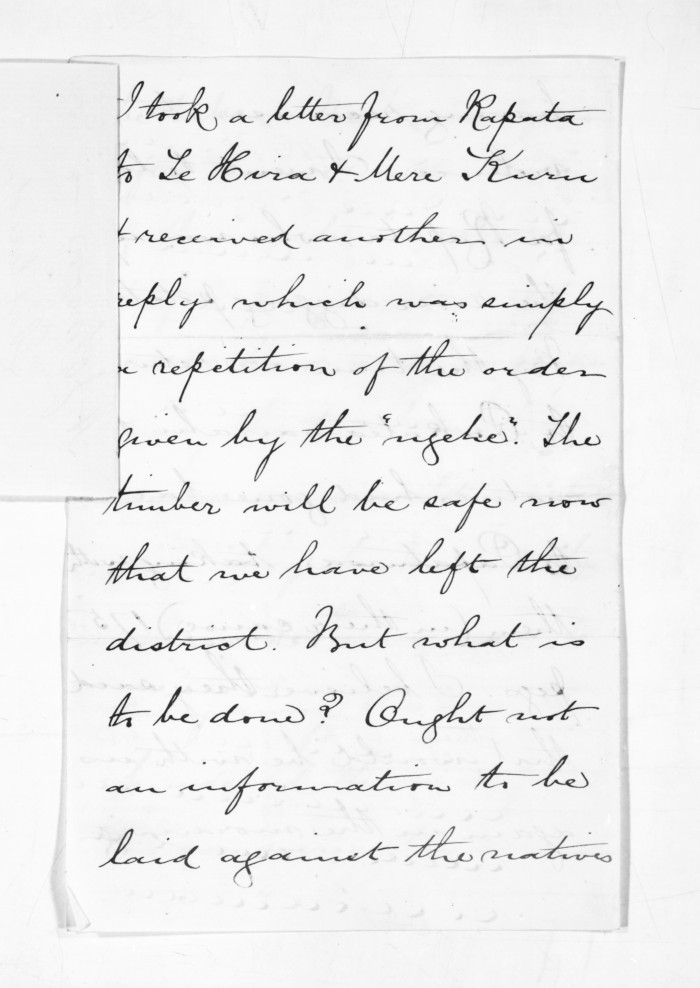 I took a letter from Rapata
to Te Hira & Mere Kuru
& received another in
reply which was simply
a repetition of the order
given by the "ngehe". The
timber will be safe now
that we have left the
district. But what is
to be done? Ought not
an information to be
laid against the natives